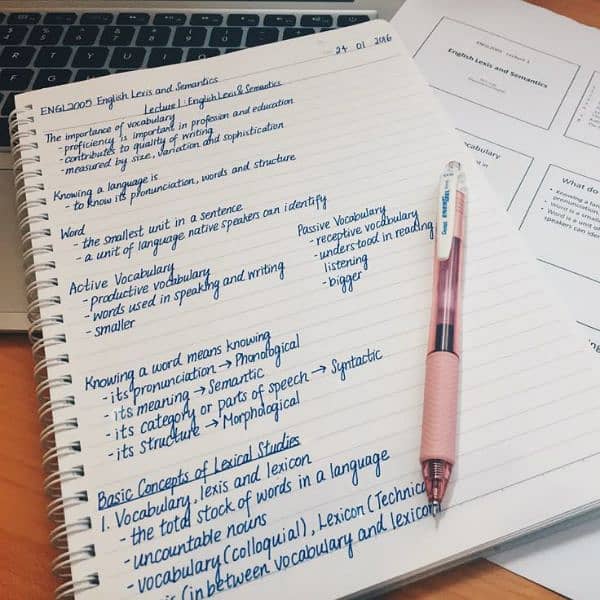 24 01 2016
ENGL2005 English Lexis and Semantics
Lecture 1: English Lexis & Semantics
The importance of vocabulary
- proficiency is important in profession and education
- contributes to quality of writing
- measured by size, variation and sophistication
Knowing a language is
- to know its pronunciation, words and structure
Word
- the smallest unit in a sentence
- a unit of language native speakers can identify
Active Vocabulary
- productive vocabulary
- words used in speaking and writing
- smaller
Passive Vocabulary
- receptive vocabulary
- understood in reading,
listening
- bigger
Knowing a word means knowing
- its pronunciation → Phonological
- its meaning → Semantic
- its category or parts of speech → Syntactic
- its structure → Morphological
Basic Concepts of Lexical Studies
1. Vocabulary, lexis and lexicon
- the total stock of words in a language
- uncountable nouns
- vocabulary (colloquial), Lexicon (Technica
(in between vocabulary and lexicon
Pentel ENERGEL
English Lexis and Semantics
What do